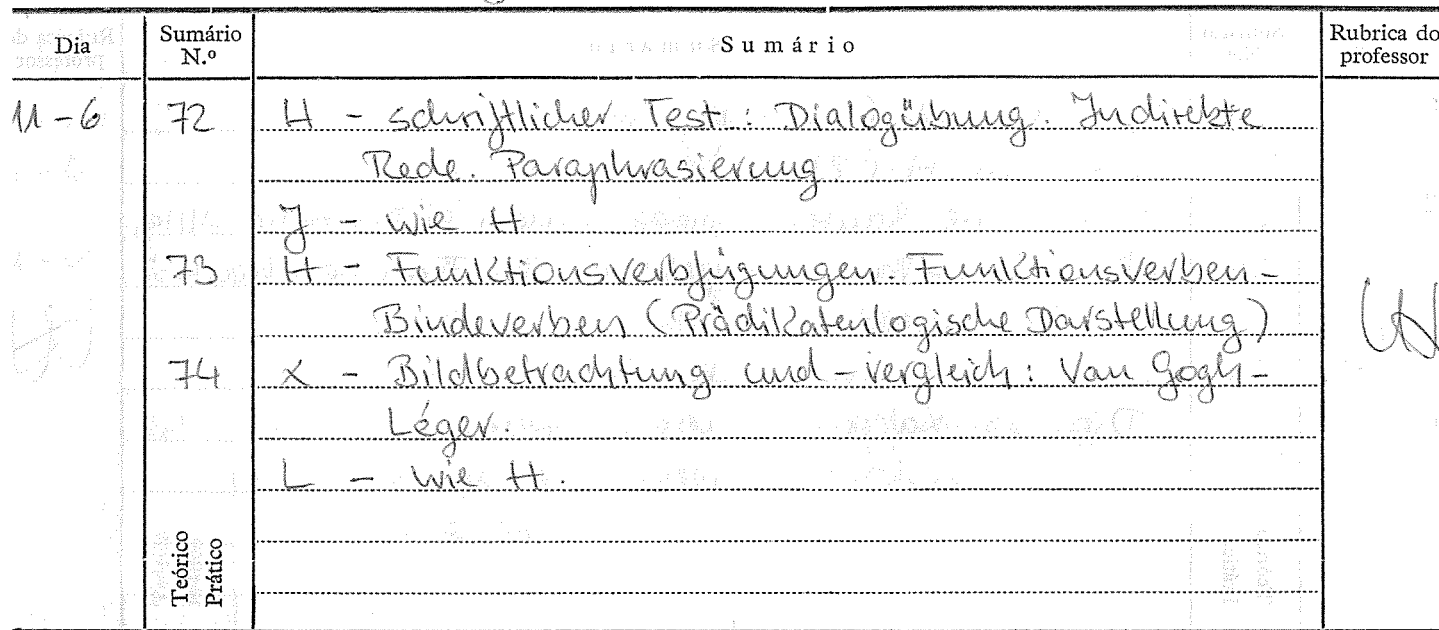 Dia Sumário N.º Sumário Rubrica do professor
11-6 72 H - schriftlicher Test: Dialogübung. Indirekte
Rede. Paraphrasierung
J - wie H
73 H - Funktionsverbfügungen. Funktionsverben -
Bindeverben (Prädikatenlogische Darstellung)
74 X - Bildbetrachtung und -vergleich: Van Gogh -
Léger.
L - wie H.
Teórico
Prático